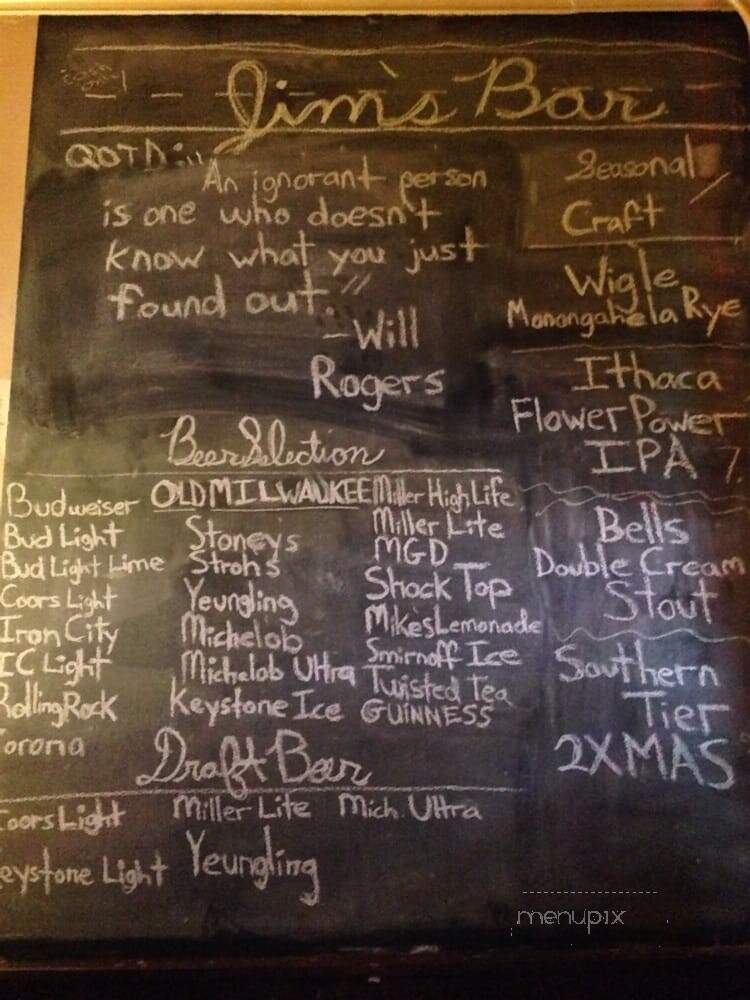 Jim's Bar
QOTD:
An ignorant person
is one who doesn't
know what you just
found out."
-Will
Rogers
Seasonal
Craft
Wigle
Monongahela Rye
Ithaca
Flower Power
IPA
Bells
Double Cream
Stout
Southern
Tier
2XMAS
Beer Selection
Budweiser
Bud Light
Bud Light Lime
Coors Light
Iron City
IC Light
Rolling Rock
Corona
OLD MILWAUKEE
Stoneys
Strohs
Yeungling
Michelob
Michelob Ultra
Keystone Ice
Miller High Life
Miller Lite
MGD
Shock Top
Mikes Lemonade
Smirnoff Ice
Twisted Tea
GUINNESS
Draft Beer
Coors Light Miller Lite Mich. Ultra
Keystone Light Yeungling
menupix